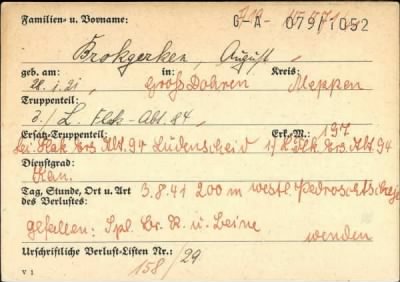 Familien- u. Vorname: G-A- 079/1052
Brokgerken, August
geb. am: in: Kreis:
28.1.21 Groß Dohren Meppen
Truppenteil:
3./ L. Flak-Abt. 84
Ersatz-Truppenteil: Erk.-M.: 197
Lei. Flak Ers. Abt. 94 Lüdenscheid Ers. Abt. 94
Dienstgrad:
Kan.
Tag, Stunde, Ort u. Art des Verlustes: 3.8.41 200 m westl.
gefallen: Spl. Br. K. u. Beine
Urschriftliche Verlust-Listen Nr.:
158/29
V 1